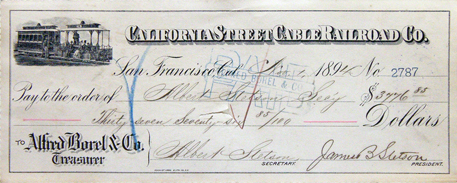 CALIFORNIA STREET CABLE RAILROAD CO.
San Francisco, Cal. 1894 No 2787
Pay to the order of Albert Stetson Secy $3776 85
Thirty seven seventy six 85/100 Dollars
TO Alfred Borel & Co.
Treasurer
Albert Stetson James B Stetson
SECRETARY. PRESIDENT.